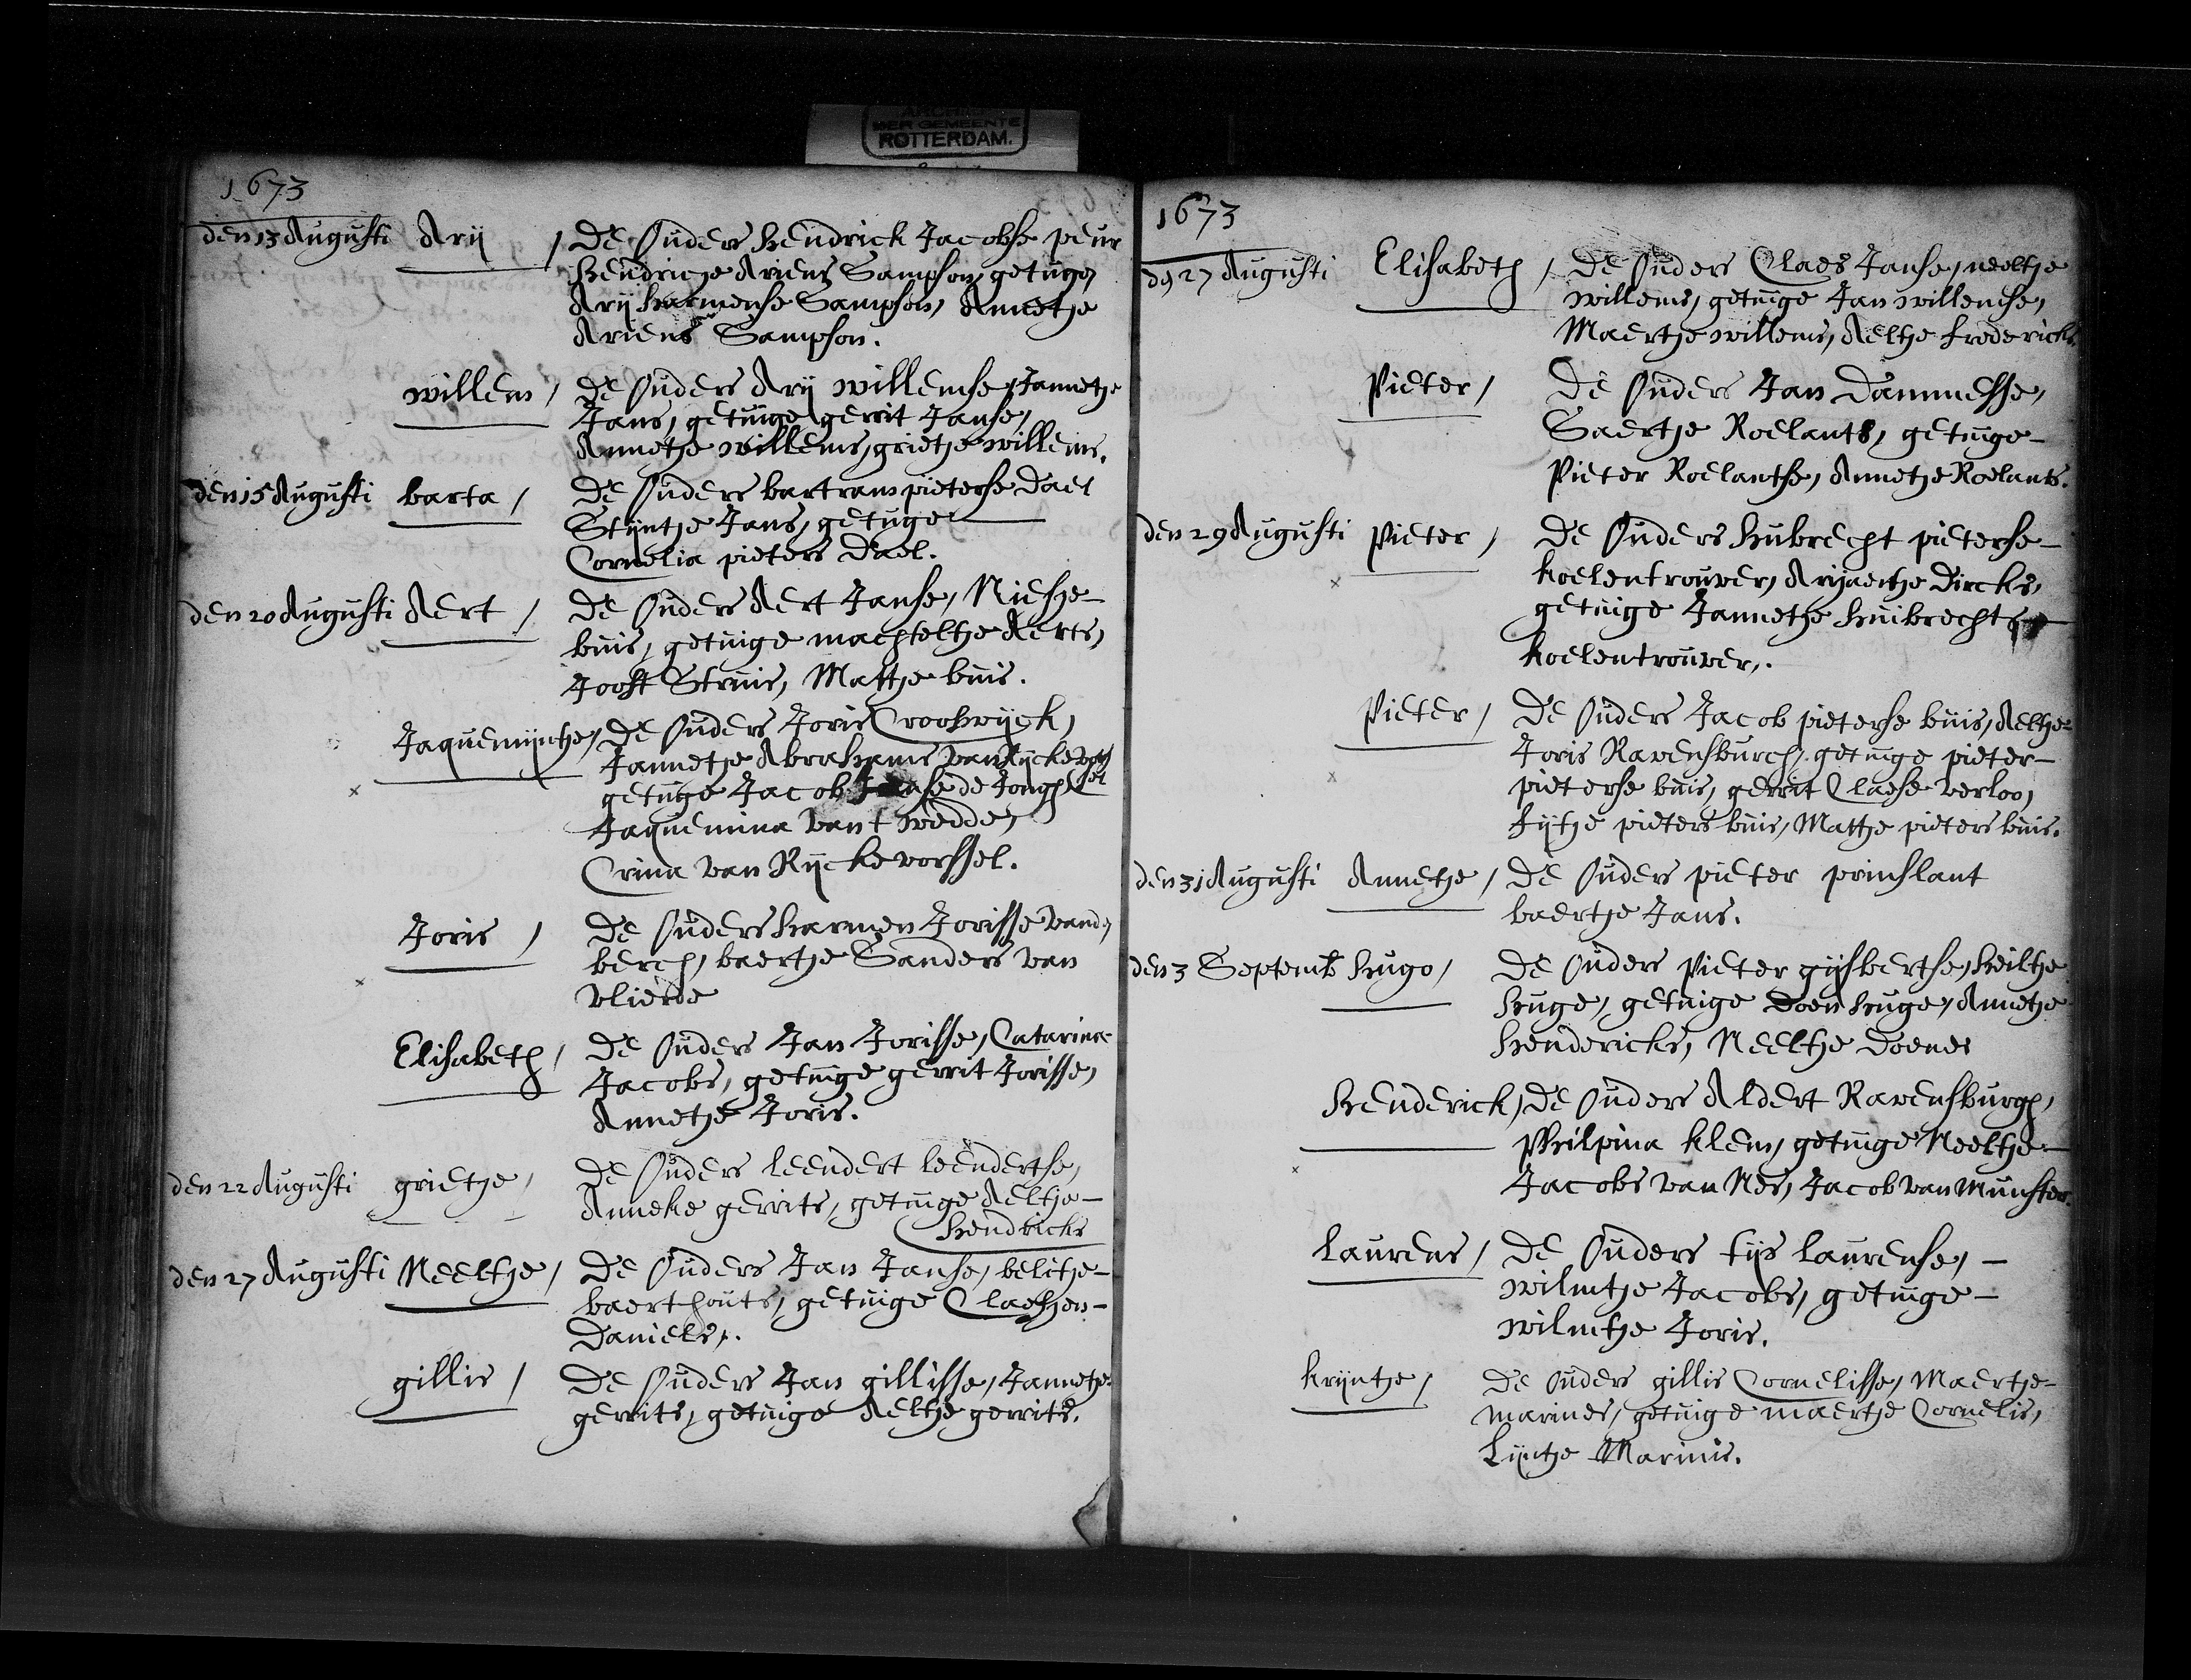 ARCHIEF
DER GEMEENTE
ROTTERDAM.
1673
den 13 Augusti Arij / De Ouders Hendrick Jacobse peur
Hendrickje Ariens Sampson, getuge,
Arij Harmense Sampson, Annetje
Ariens Sampson.
willem / De Ouders Arij willemse, Jannetje
Jans, getuige gerrit Janse,
Annetje willems, grietje willems.
den 15 Augusti barta / De Ouders bartram pieterse Dael
Stijntje Jans, getuge
Cornelia pieters Dael.
den 20 Augusti Aert / De Ouders Aert Janse, Niesje
buis, getuige machteltje Aerts,
Joost Struis, Mattje buis.
Jaquemijntje, De Ouders Joris Crooswijck,
Jannetje Abrahams van Rijckevors
sel
getuige Jacob Janse de Jongh
Jaquemina van t wedde,
Crina van Rijckevorssel.
Joris / De Ouders Harmen Jorisse vand,
berch, baertje Sanders van
Vlierde
Elisabeth / De Ouders Jan Jorisse, Catarina
Jacobs, getuige gerrit Jorisse,
Annetje Joris.
den 22 Augusti grietje / De Ouders leendert leenderse,
Anneke gerrits, getuige Aeltje
Hendricks
den 27 Augusti Neeltje / De Ouders Jan Janse, belitje
baerthouts, getuige Claesjen
Daniels,.
gillis / De Ouders Jan gillisse, Jannetje
gerrits, getuige Aeltje gerrits.
1673
den 27 Augusti Elisabeth / De Ouders Claes Janse, neeltje
willems, getuige Jan willemse,
Maertje willems, Aeltje fredericks.
Pieter / De Ouders Jan Dammesse,
Saertje Roelants, getuige
Pieter Roelantse, Annetje Roelants.
den 29 Augusti Pieter / De Ouders Hubrecht pieterse
koelentrouwer, Arijaentje Dircks,
getuige Jannetje Huibrechts
koelentrouwer,.
Pieter / De Ouders Jacob pieterse buis, Aeltje
Joris Ravensburch, getuige pieter
pieterse buis, gerrit Claese verloo,
fijtje pieters buis, Mattje pieters buis.
den 31 Augusti Annetje / De Ouders pieter prinslant
baertje Jans.
den 3 Septemb Hugo / De Ouders Pieter gijsbertse, Heiltje
Huge, getuige Doen Huge, Annetje
Hendericks, Neeltje Doenes
Henderick, De Ouders Aldert Ravensburgh,
Philpina klem, getuige Neeltje
Jacobs van Nes, Jacob van Munster.
laurens / De Ouders tijs laurense,
wilmtje Jacobs, getuige
wilmtje Joris.
krijntje / De Ouders gillis Cornelisse, Maertje
marines, getuige maertje Cornelis,
Lijntje Marinis.